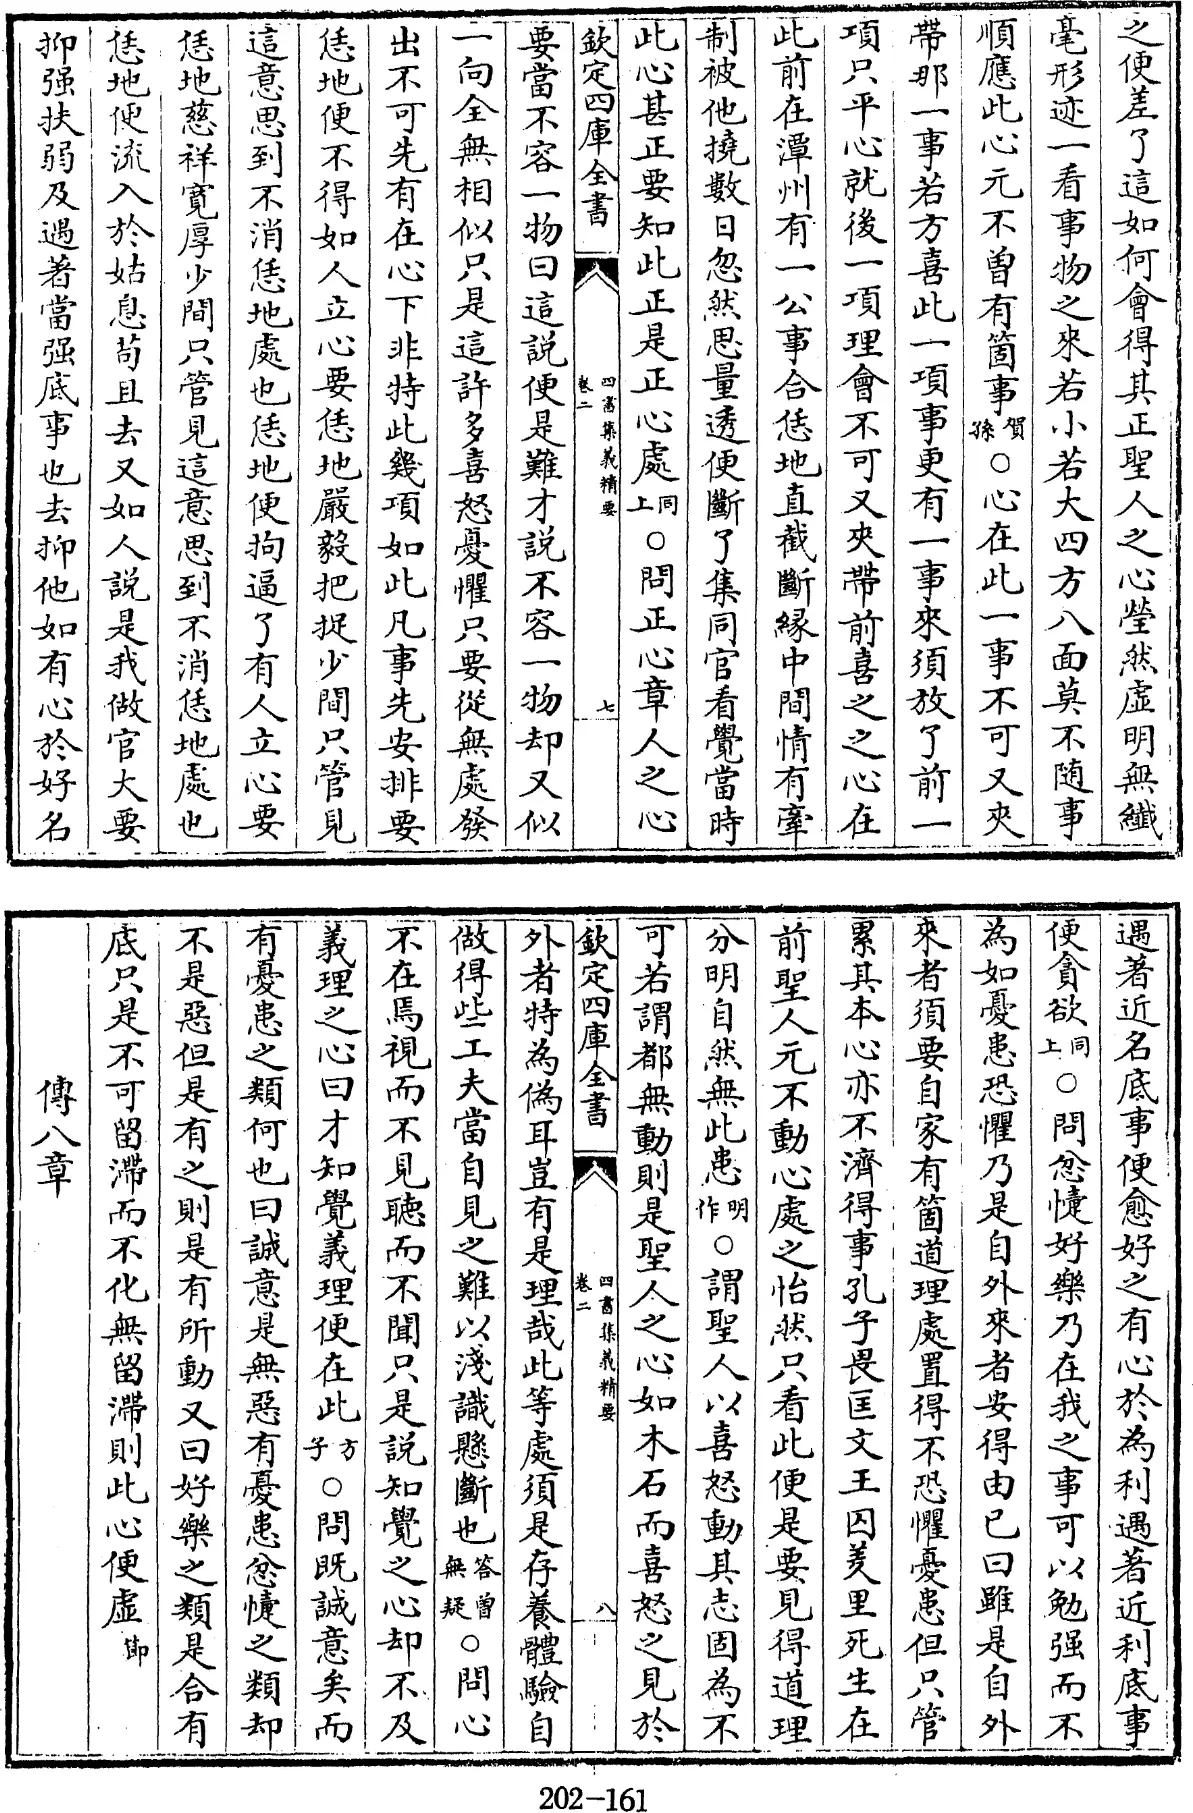 之便差了這如何會得其正聖人之心瑩然虛明無纖
毫形迹一看事物之來若小若大四方八面莫不隨事
順應此心元不曾有箇事賀孫○心在此一事不可又夾
帶那一事若方喜此一項事更有一事來須放了前一
項只平心就後一項理會不可又夾帶前喜之之心在
此前在潭州有一公事合恁地直截斷緣中間情有牽
制被他撓數日忽然思量透便斷了集同官看覺當時
此心甚正要知此正是正心處同上○問正心章人之心
欽定四庫全書 四書集義精要 卷二 七
要當不容一物曰這說便是難才說不容一物却又似
一向全無相似只是這許多喜怒憂懼只要從無處發
出不可先有在心下非特此幾項如此凡事先安排要
恁地便不得如人立心要恁地嚴毅把捉少間只管見
這意思到不消恁地處也恁地便拘逼了有人立心要
恁地慈祥寬厚少間只管見這意思到不消恁地處也
恁地便流入於姑息苟且去又如人說是我做官大要
抑强扶弱及遇著當强底事也去抑他如有心於好名
遇著近名底事便愈好之有心於為利遇著近利底事
便貪欲同上○問忿懥好樂乃在我之事可以勉强而不
為如憂患恐懼乃是自外來者安得由已曰雖是自外
來者須要自家有箇道理處置得不恐懼憂患但只管
累其本心亦不濟得事孔子畏匡文王囚羑里死生在
前聖人元不動心處之怡然只看此便是要見得道理
分明自然無此患明作○謂聖人以喜怒動其志固為不
可若謂都無動則是聖人之心如木石而喜怒之見於
欽定四庫全書 四書集義精要 卷二 八
外者特為偽耳豈有是理哉此等處須是存養體驗自
做得些工夫當自見之難以淺識懸斷也答曾無疑○問心
不在焉視而不見聽而不聞只是說知覺之心却不及
義理之心曰才知覺義理便在此方子○問既誠意矣而
有憂患之類何也曰誠意是無惡有憂患忿懥之類却
不是惡但是有之則是有所動又曰好樂之類是合有
底只是不可留滯而不化無留滯則此心便虛節
傳八章
202-161